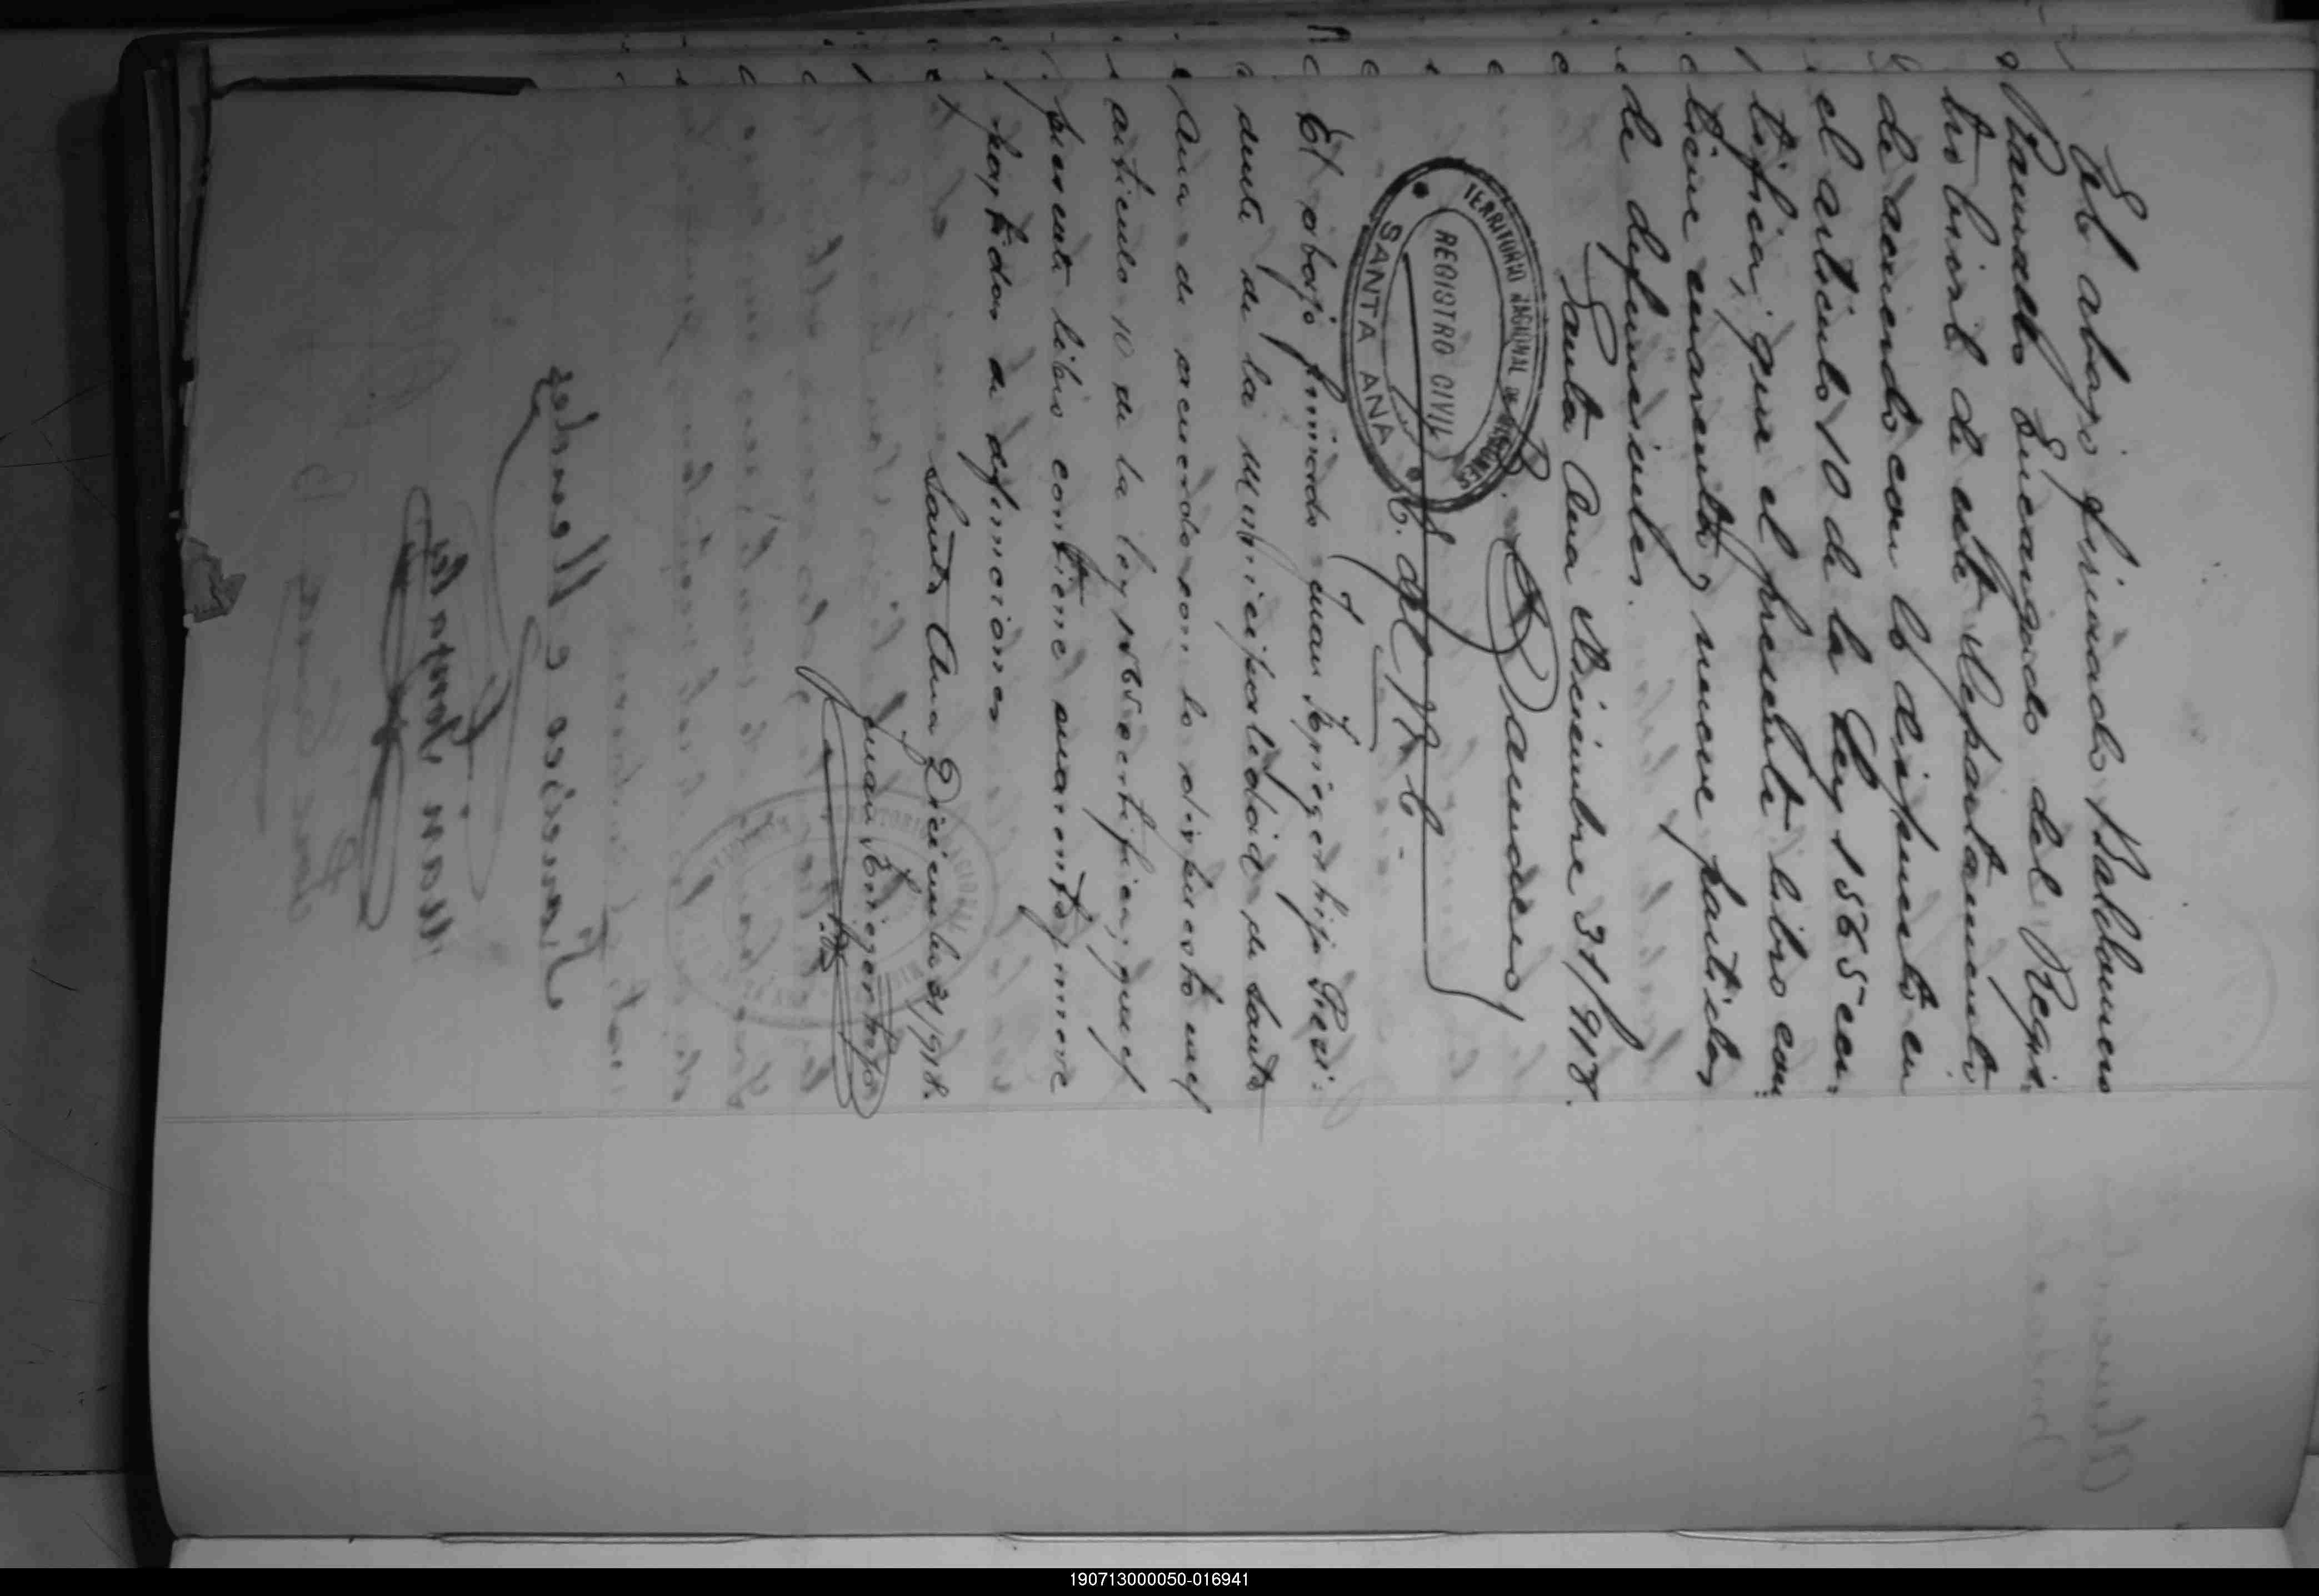 El abajo firmado Baldomero
Ramallo Encargado del Regis:
tro Civil de este Departamento
de acuerdo con lo dispuesto en
el artículo 10 de la Ley 1565 cer:
tifica; que el presente libro con:
tiene cuarenta y nueve partidas
de defunciones.
Santa Ana Diciembre 31/918.
B. Ramallo
E. del R. C.
TERRITORIO NACIONAL DE MISIONES
REGISTRO CIVIL
SANTA ANA
El abajo firmado Juan Krieger hijo Presi:
dente de la Municipalidad de Santa
Ana de acuerdo con lo dispuesto en el
artículo 10 de la ley 1565 certifica; que el
presente libro contiene cuarenta y nueve
partidas de defunciones
Santa Ana Diciembre 31/918.
Juan Krieger hijo
190713000050-016941